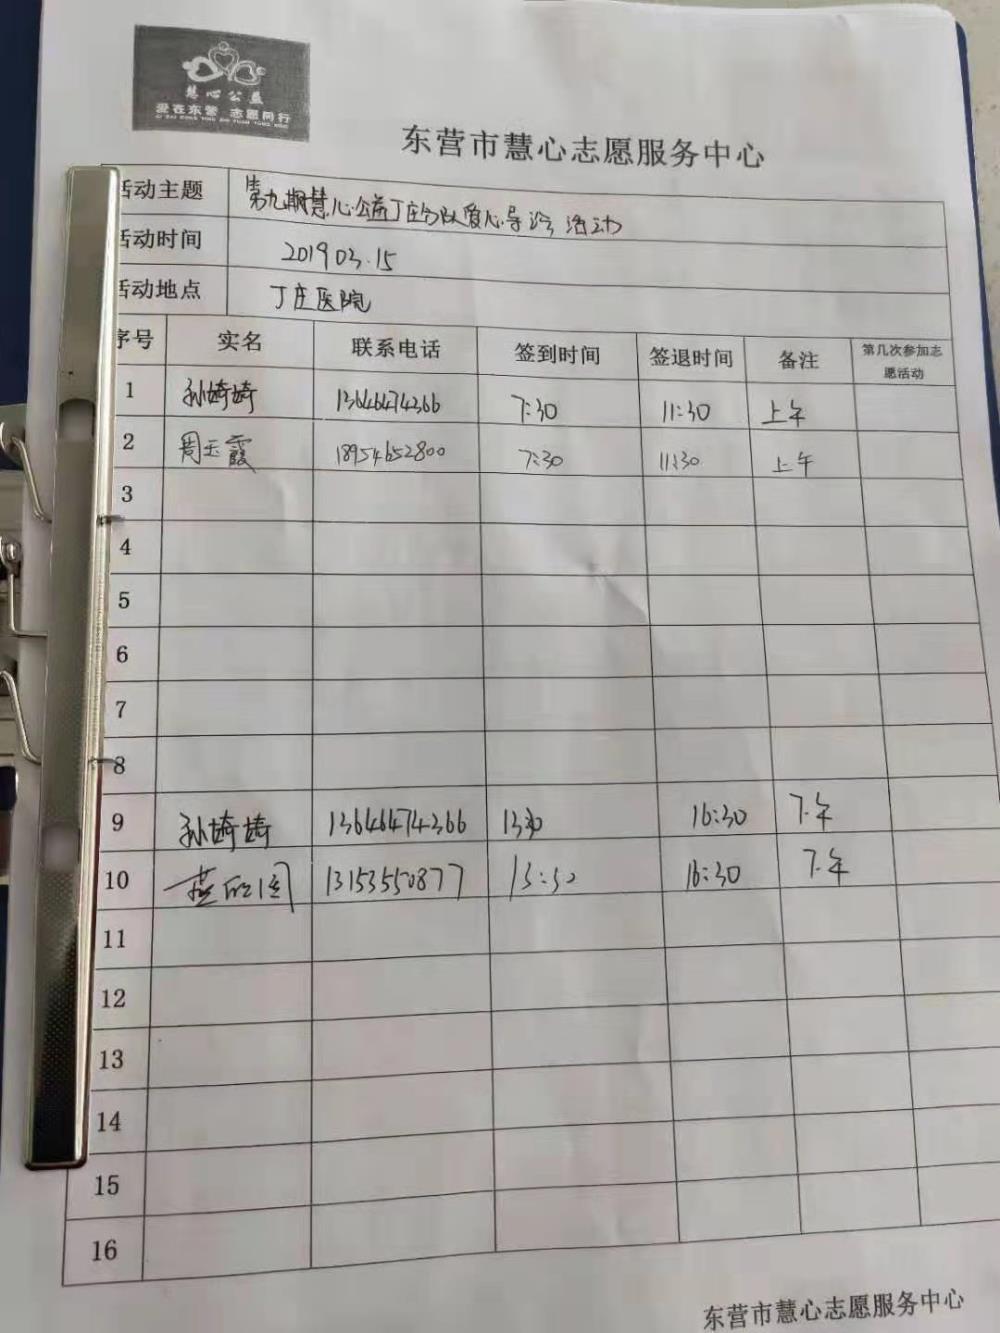 慧心公益
爱在东营 志愿同行
东营市慧心志愿服务中心
活动主题 第九期慧心公益丁庄分队爱心导诊活动
活动时间 2019 03.15
活动地点 丁庄医院
序号 实名 联系电话 签到时间 签退时间 备注 第几次参加志愿活动
1 孙婷婷 13646474366 7:30 11:30 上午
2 周玉霞 18954652800 7:30 11:30 上午
3
4
5
6
7
8
9 孙婷婷 13646474366 1330 16:30 下午
10 燕 13153550877 13:30 16:30 下午
11
12
13
14
15
16
东营市慧心志愿服务中心